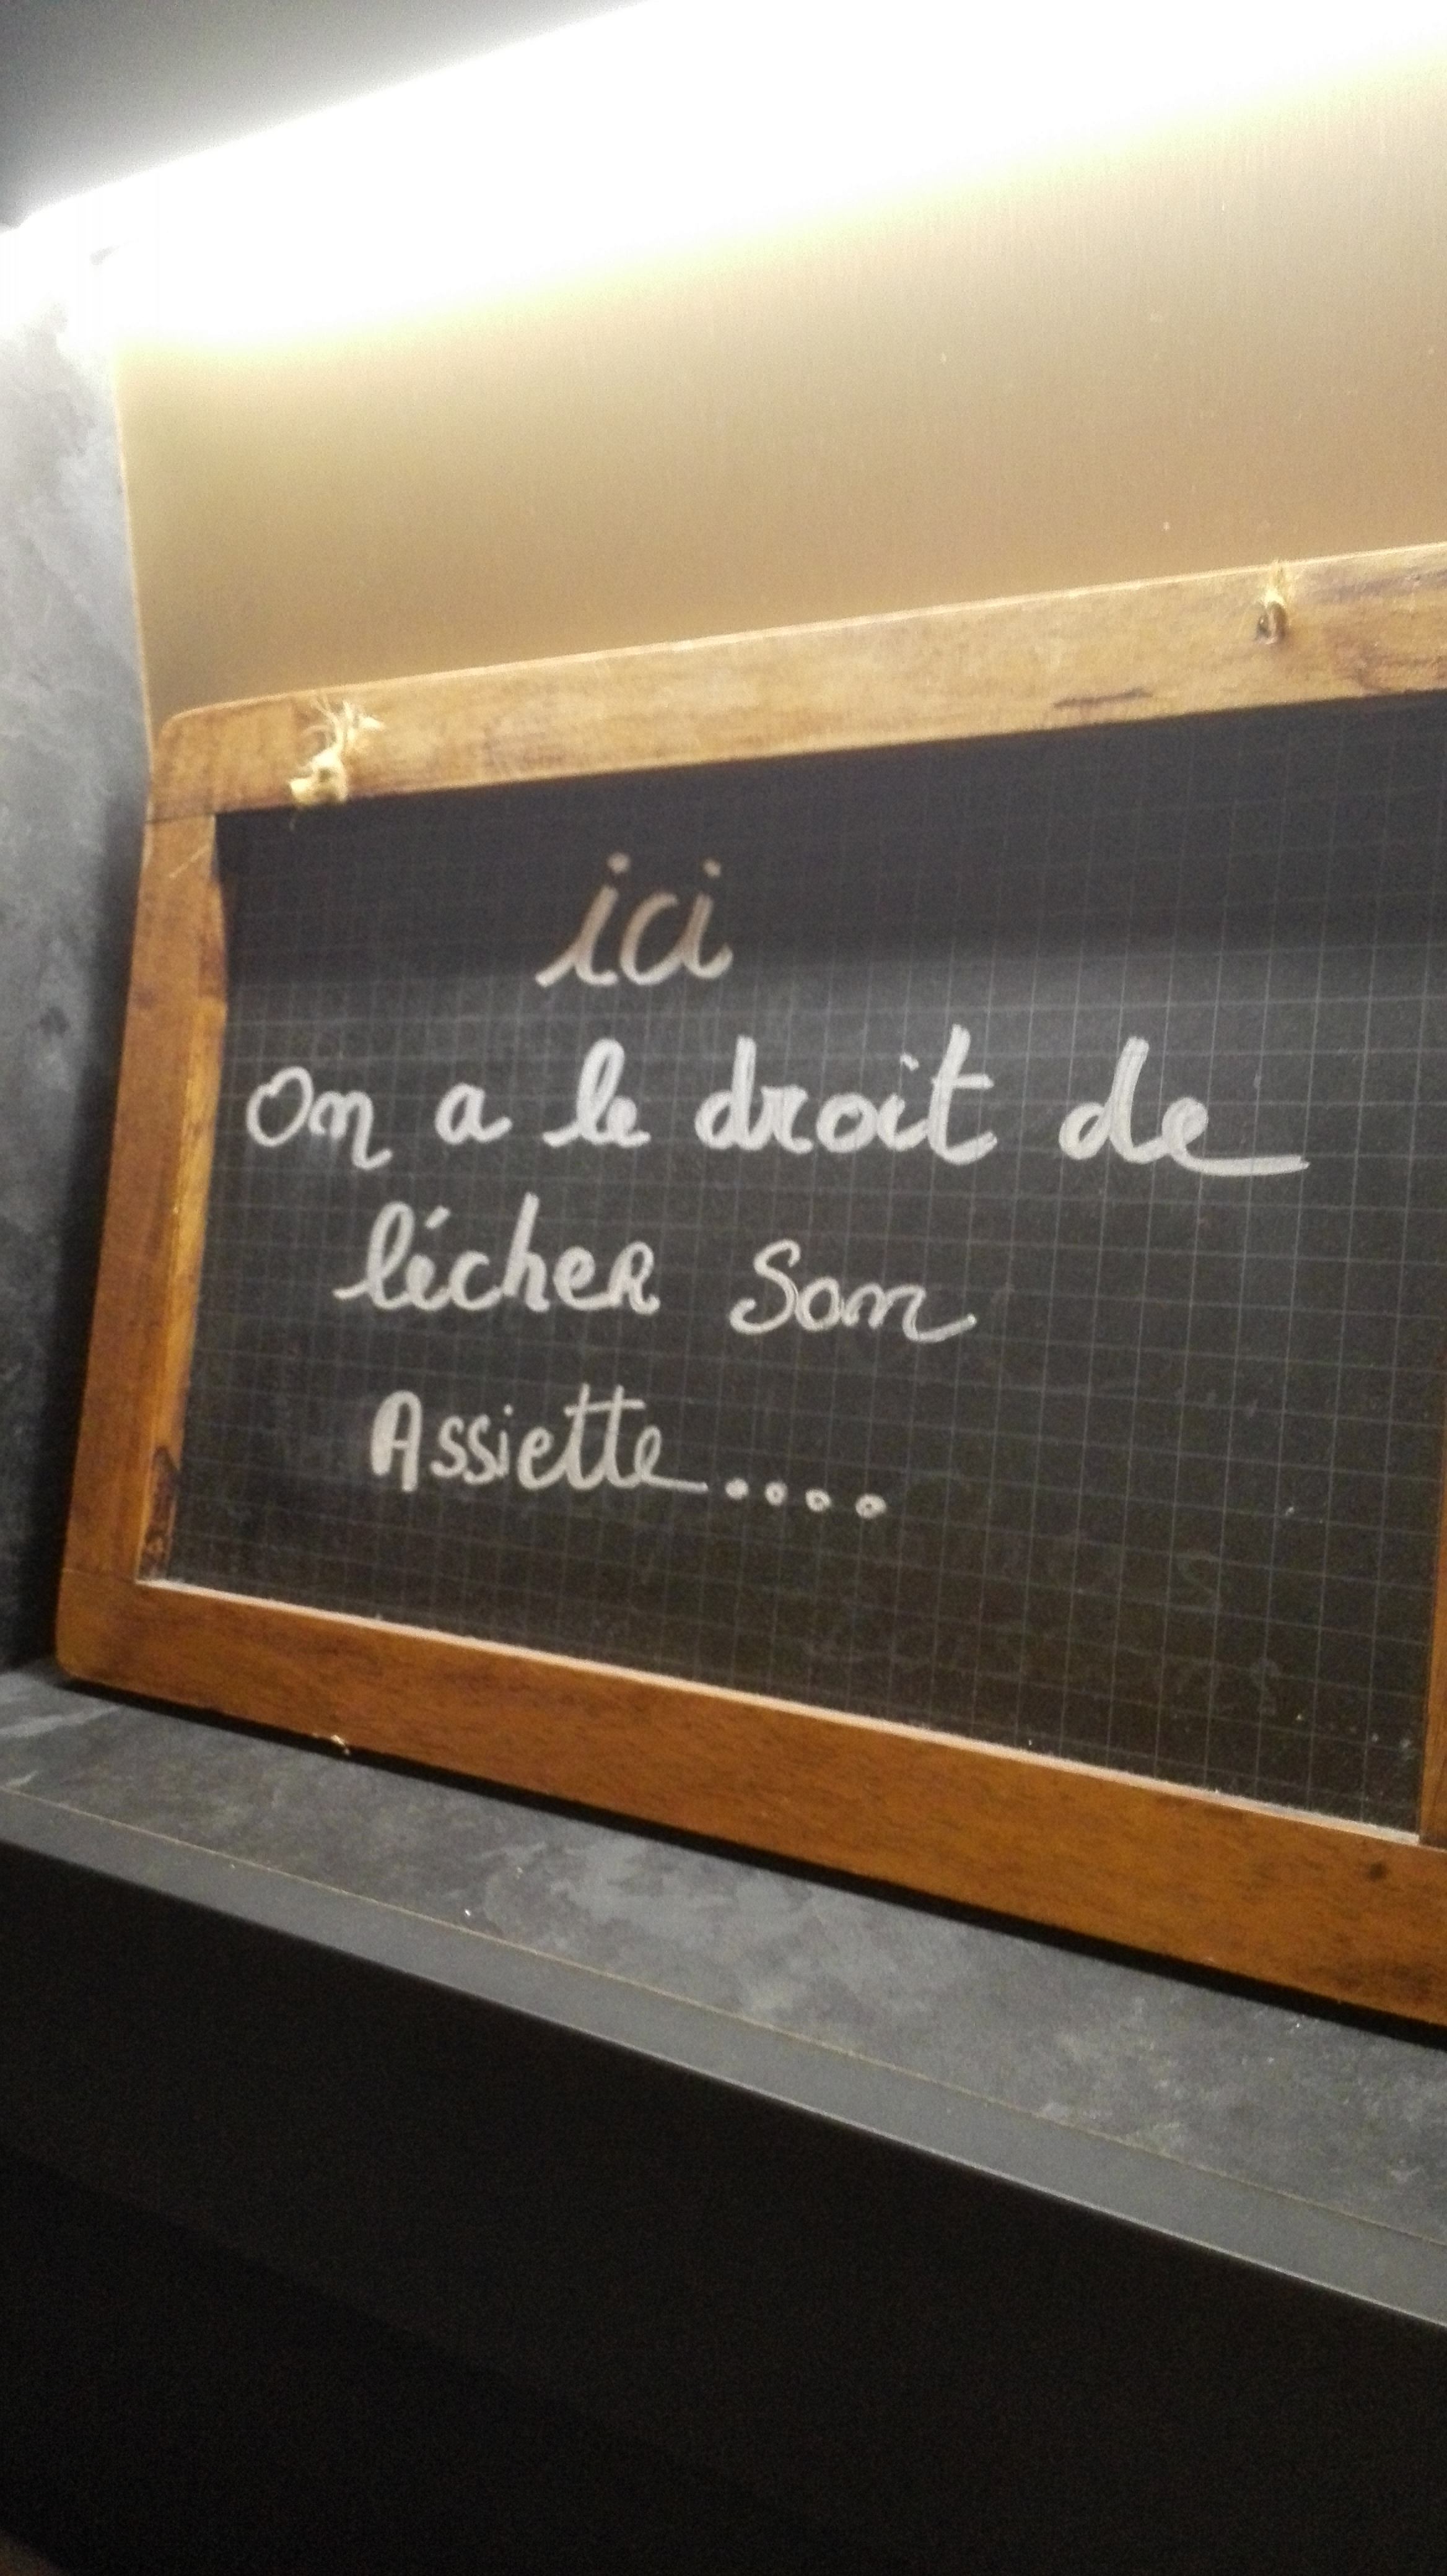 ici
On a le droit de
lécher Son
Assiette....